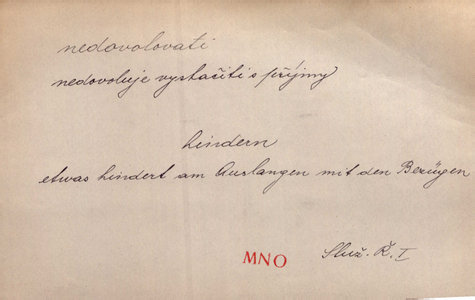 nedovolovati
nedovoluje vystačiti s příjmy
hindern
etwas hindert am Auslangen mit den Bezügen
MNO
Služ. Ř. I